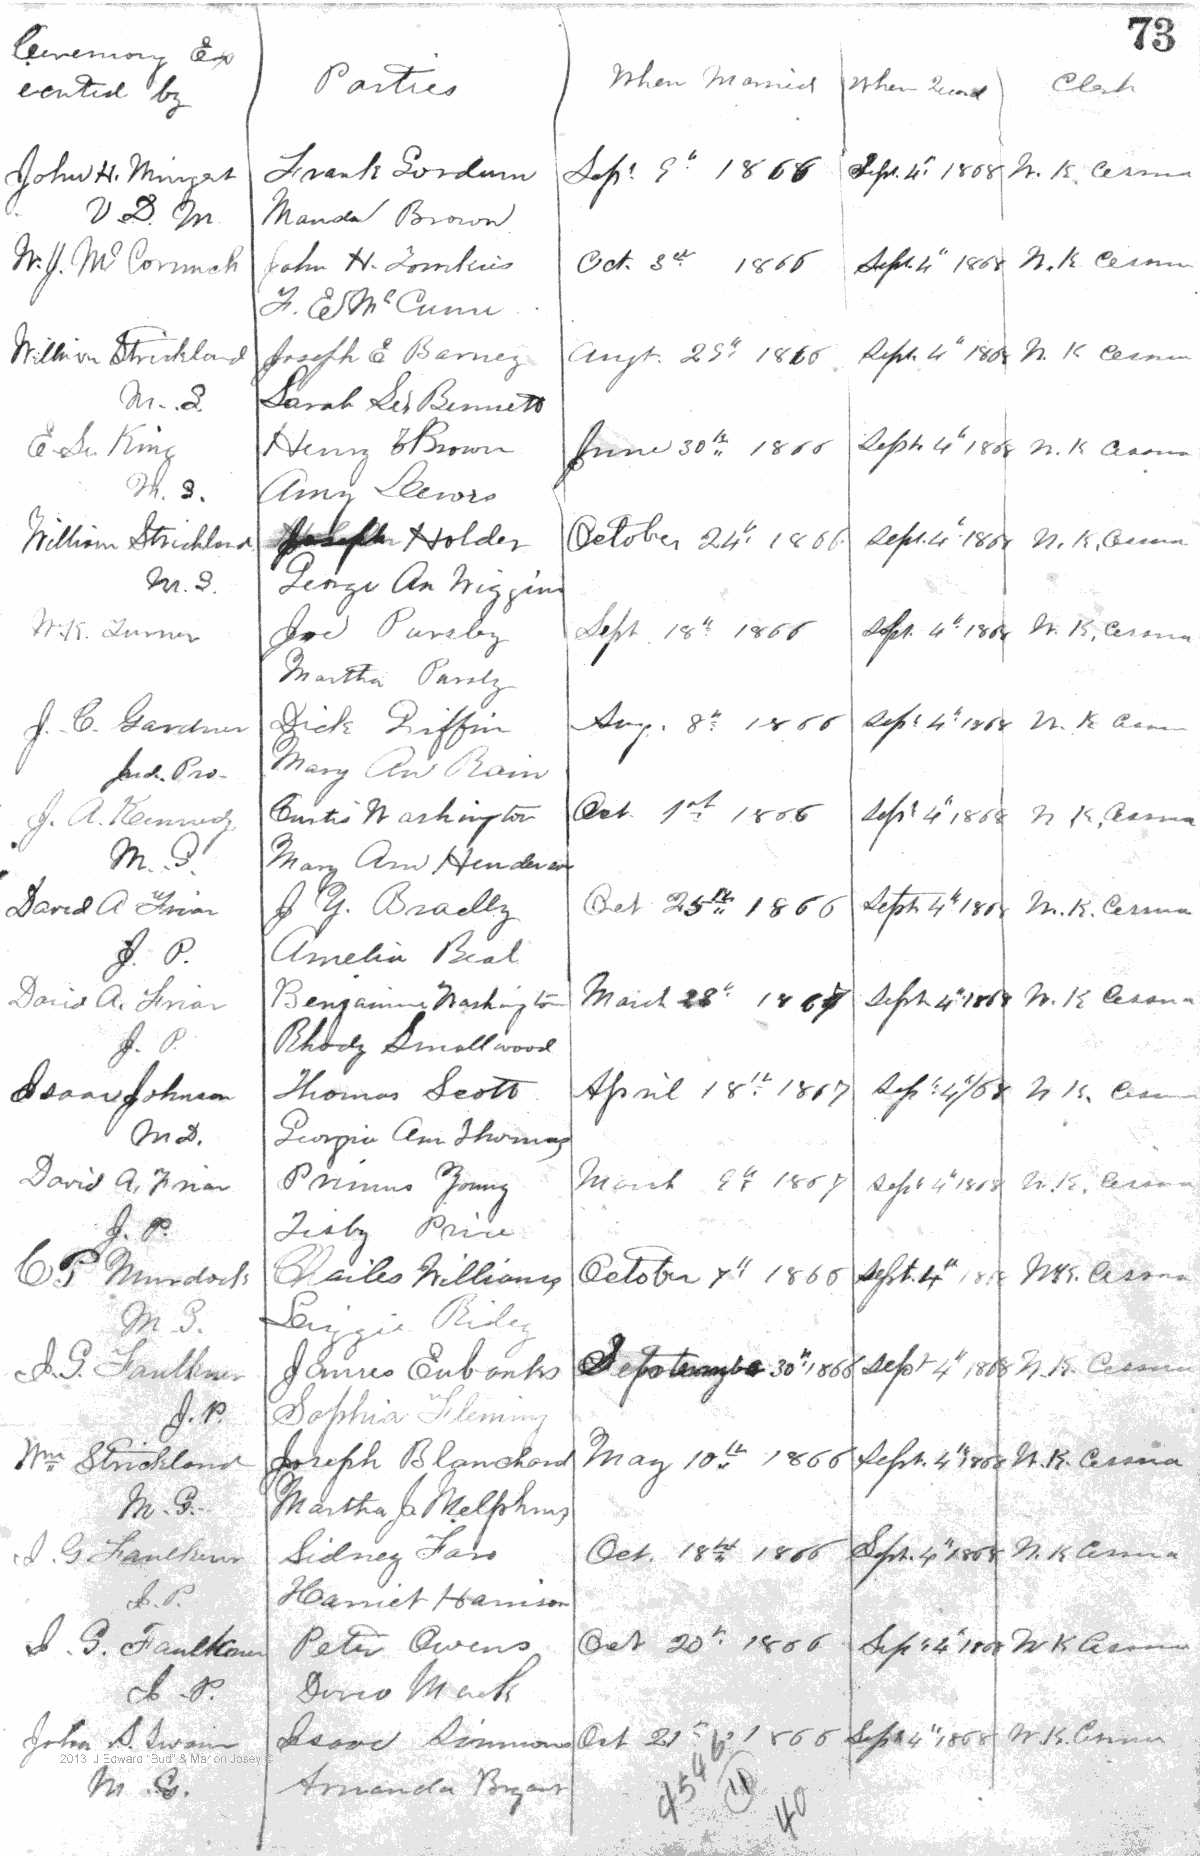 73
Ceremony Ex
ecuted by Parties When Married When Record Clerk
John H. Mingest Frank Gordum Sept. 9th 1866 Sept. 4th 1868 N. K. Cessna
V. D. M. Manda Brown
W. J. McCormick John H. Tomkies Oct. 3rd 1866 Sept. 4th 1868 N. K. Cessna
F. E. McCune
William Strickland Joseph E Barney Augt. 29th 1866 Sept. 4th 1868 N. K Cessna
M. G. Sarah Bennett
E. King Henry Brown June 30th 1866 Sept. 4th 1868 N. K Cessna
M. G. Amy
William Strickland Joseph Holder October 24th 1866 Sept. 4th 1868 N. K. Cessna
M. G. George An Wiggins
W. K. Turner Joe Pursby Sept 18th 1866 Sept. 4th 1868 N. K. Cessna
Martha Pursly
J. C. Gardner Dick Griffin Aug. 8th 1866 Sept 4th 1868 N. K Cessna
Jud. Pro. Mary An Rain
J. A. Kennedy Curtis Washington Oct. 1st 1866 Sept 4th 1868 N K. Cessna
M. G. Mary Ann Henderson
David A Friar J Y. Bradly Oct 25th 1866 Sept 4th 1868 N. K. Cessna
J. P. Amelia Beal
David A. Friar Benjamine Washington March 28th 1867 Sept 4th 1868 N. K Cessna
J. P. Rhody Smallwood
Isaac Johnson Thomas Scott April 18th 1867 Sept. 4th/68 N K. Cessna
M D. Georgia Ann Thomas
David A. Friar Primus Young March 9th 1867 Sept 4th 1868 N. K. Cessna
J. P. Tisby Price
C P Murdock Charles Williams October 7th 1866 Sept. 4th 1868 N K. Cessna
M G. Lizzie Riley
I. G. Faulkner James Eubanks September 30th 1866 Sept 4th 1868 N. K. Cessna
J. P. Sophia Fleming
Wm Strickland Joseph Blanchard May 10th 1866 Sept. 4th 1868 N. K. Cessna
M. G. Martha J. Melphrus
I. G Faulkner Sidney Faro Oct. 18th 1866 Sept. 4th 1868 N. K Cessna
J. P. Harriet Harrison
I. G. Faulkner Peter Owens Oct 20th 1866 Sept 4th 1868 N K Cessna
J. P. Mack
John S. Swain Isaac Simmons Oct 21st 1866 Sept 4th 1868 N. K. Cessna
2013 J Edward "Bud" & Marion Josey ©
M. G. Amanda Bryant
4546
11
40